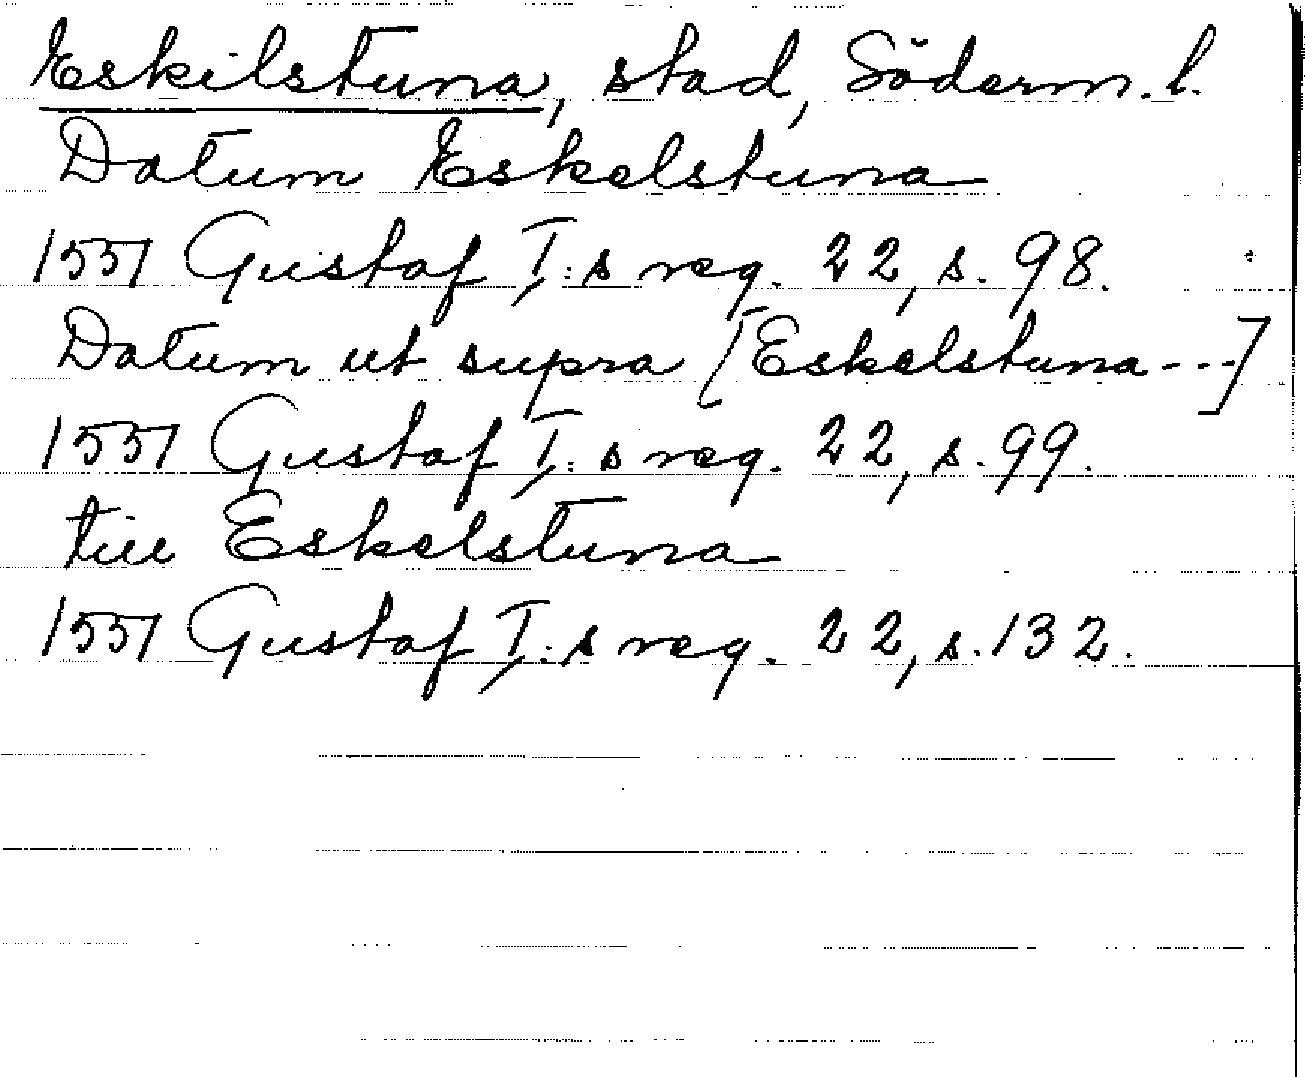 Eskilstuna, stad, Söderm. l.
Datum Eskelstuna
1551 Gustaf I:s reg. 22, s. 98.
Datum ut supra [Eskelstuna---]
1551 Gustaf I:s reg. 22, s. 99.
till Eskelstuna
1551 Gustaf I:s reg. 22, s. 132.